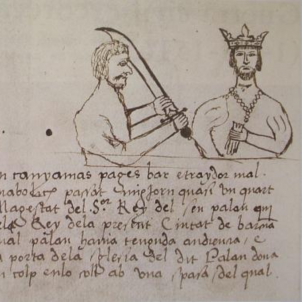 n canyamas pages bar e traydor mal
diabolich passat mig jorn quasi un quart
Magestat del S.or Rey del en palau
Rey de la present Ciutat de barna
qual palau havia tenguda audiencia, e
porta dela sglesia del dit Palau dona
colp en lo coll ab una spasa del qual